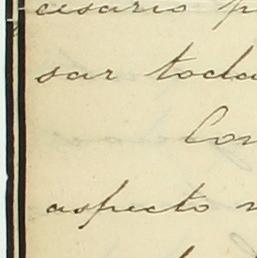 cesario p
sar toda
Con
aspecto